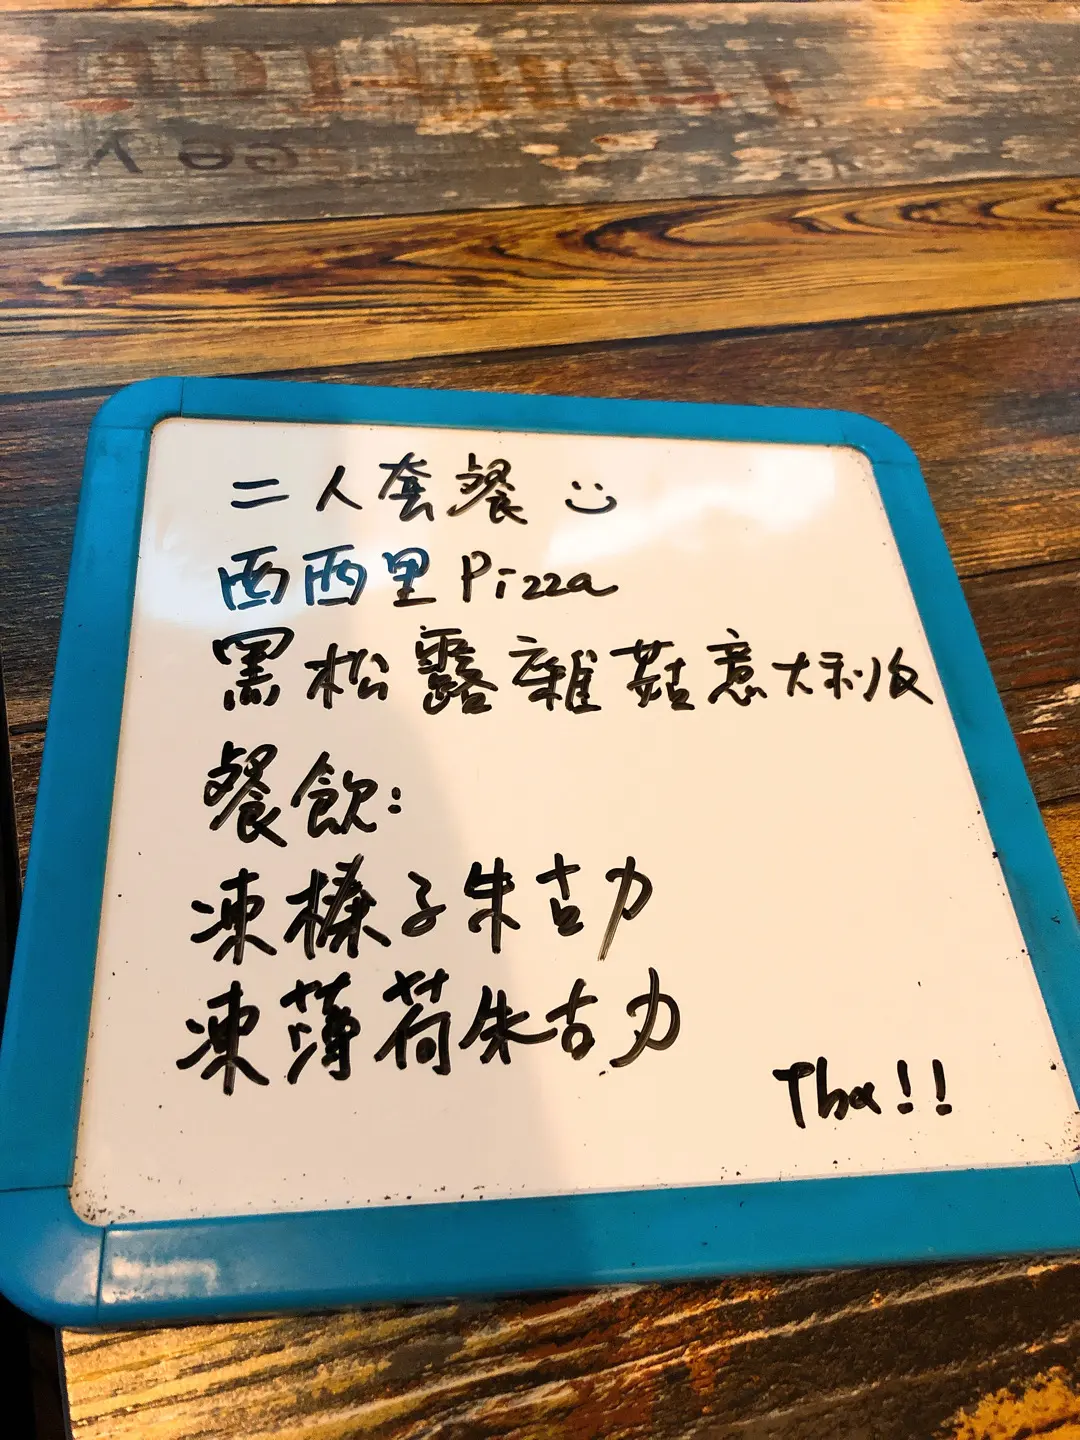 二人套餐
西西里Pizza
黑松露雜菇意大利飯
餐飲:
凍榛子朱古力
凍薄荷朱古力
Thx!!